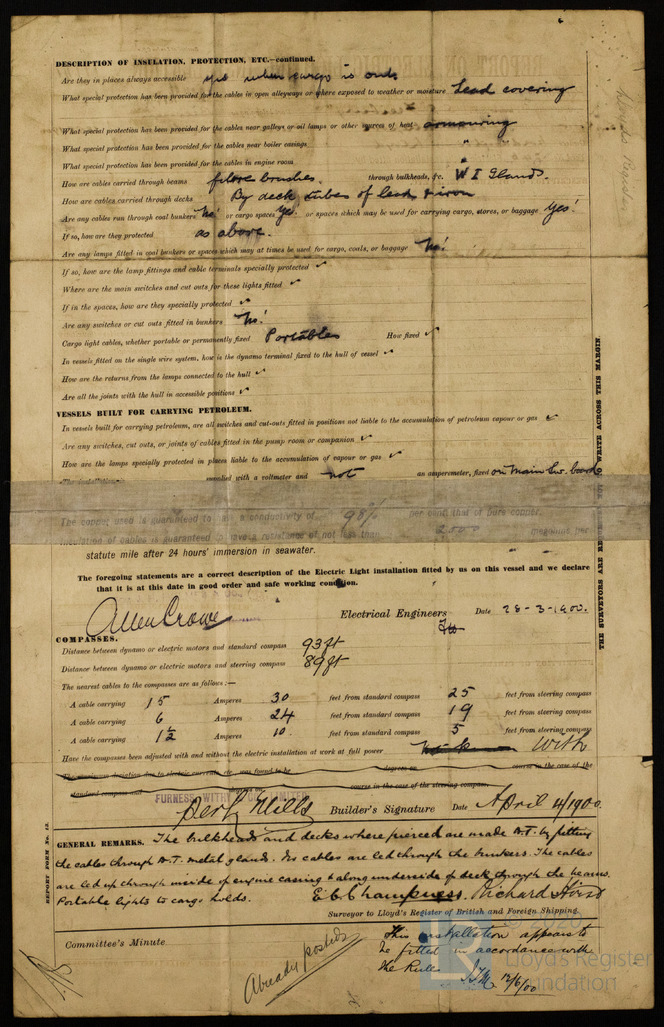 DESCRIPTION OF INSULATION, PROTECTION, ETC.—continued.
Are they in places always accessible yes when cargo is out
What special protection has been provided for the cables in open alleyways or where exposed to weather or moisture Lead covering
What special protection has been provided for the cables near galleys or oil lamps or other sources of heat armouring
What special protection has been provided for the cables near boiler casings " "
What special protection has been provided for the cables in engine room " "
How are cables carried through beams fibre brushes. through bulkheads, &c. W I Glands.
How are cables carried through decks By deck tubes of lead & iron
Are any cables run through coal bunkers No! or cargo spaces Yes! or spaces which may be used for carrying cargo, stores, or baggage Yes!
If so, how are they protected as above.
Are any lamps fitted in coal bunkers or spaces which may at times be used for cargo, coals, or baggage No!
If so, how are the lamp fittings and cable terminals specially protected ✓
Where are the main switches and cut outs for these lights fitted ✓
If in the spaces, how are they specially protected ✓
Are any switches or cut outs fitted in bunkers No!
Cargo light cables, whether portable or permanently fixed Portables How fixed ✓
In vessels fitted on the single wire system, how is the dynamo terminal fixed to the hull of vessel ✓
How are the returns from the lamps connected to the hull ✓
Are all the joints with the hull in accessible positions ✓
VESSELS BUILT FOR CARRYING PETROLEUM.
In vessels built for carrying petroleum, are all switches and cut-outs fitted in positions not liable to the accumulation of petroleum vapour or gas ✓
Are any switches, cut outs, or joints of cables fitted in the pump room or companion ✓
How are the lamps specially protected in places liable to the accumulation of vapour or gas ✓
The installation supplied with a voltmeter and not an amperemeter, fixed on Main Sw. board
The copper used is guaranteed to have a conductivity of 98% per cent. that of pure copper.
Insulation of cables is guaranteed to have a resistance of not less than 2000 megohms per
statute mile after 24 hours' immersion in seawater.
The foregoing statements are a correct description of the Electric Light installation fitted by us on this vessel and we declare
that it is at this date in good order and safe working condition.
Allen Crowe Electrical Engineers Date 28-3-1900.
COMPASSES.
Distance between dynamo or electric motors and standard compass 93 ft
Distance between dynamo or electric motors and steering compass 89 ft
The nearest cables to the compasses are as follows:—
A cable carrying 15 Amperes 30 feet from standard compass 25 feet from steering compass
A cable carrying 6 Amperes 24 feet from standard compass 19 feet from steering compass
A cable carrying 1½ Amperes 10 feet from standard compass 5 feet from steering compass
Have the compasses been adjusted with and without the electric installation at work at full power With
The maximum deviation due to electric currents, etc., was found to be degrees on course in the case of the
standard compass and course in the case of the steering compass.
FURNESS WITHY & CO. LIMITED
Percy Mills Builder's Signature Date April 4/1900.
GENERAL REMARKS. The bulkheads and decks where pierced are made W.T. by fitting
the cables through W.T. metal glands. No cables are led through the bunkers. The cables
are led up through inside of engine casing & along underside of deck through the beams.
Portable lights to cargo holds. E C Champness. Richard Hirst
Surveyor to Lloyd's Register of British and Foreign Shipping.
Committee's Minute
This installation appears to
be fitted in accordance with
the Rules
12/6/00
Already posted
REPORT FORM No. 13.
THE SURVEYORS ARE REQUESTED NOT TO WRITE ACROSS THIS MARGIN.
Lloyds Register
Lloyd's Register
Foundation